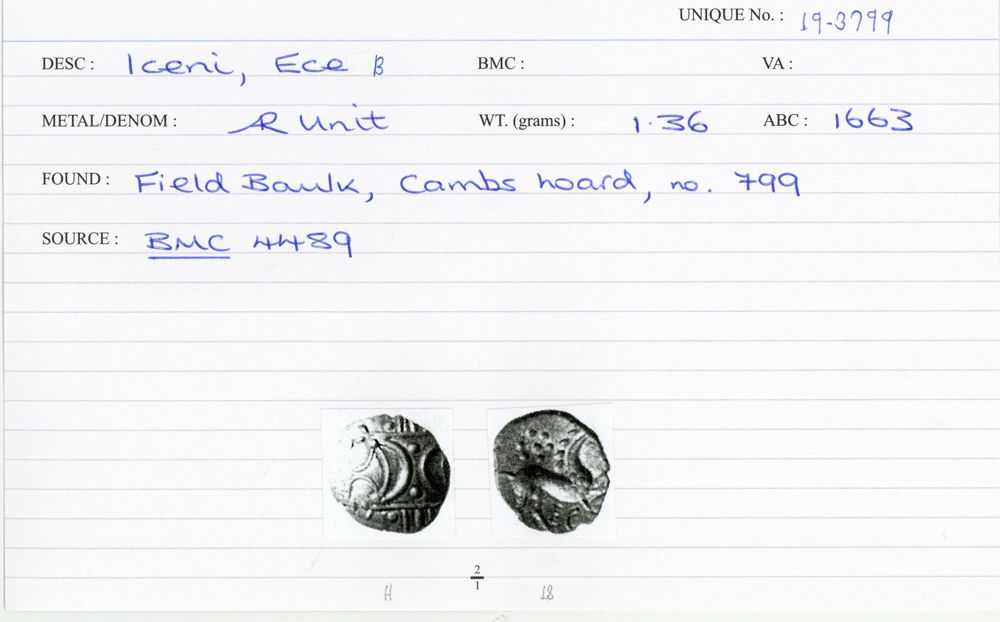 UNIQUE No. : 19-3799
DESC : Iceni, Ece B BMC : VA :
METAL/DENOM : AR Unit WT. (grams) : 1.36 ABC : 1663
FOUND : Field Baulk, Cambs hoard, no. 799
SOURCE : BMC 4489
2
1
H 18